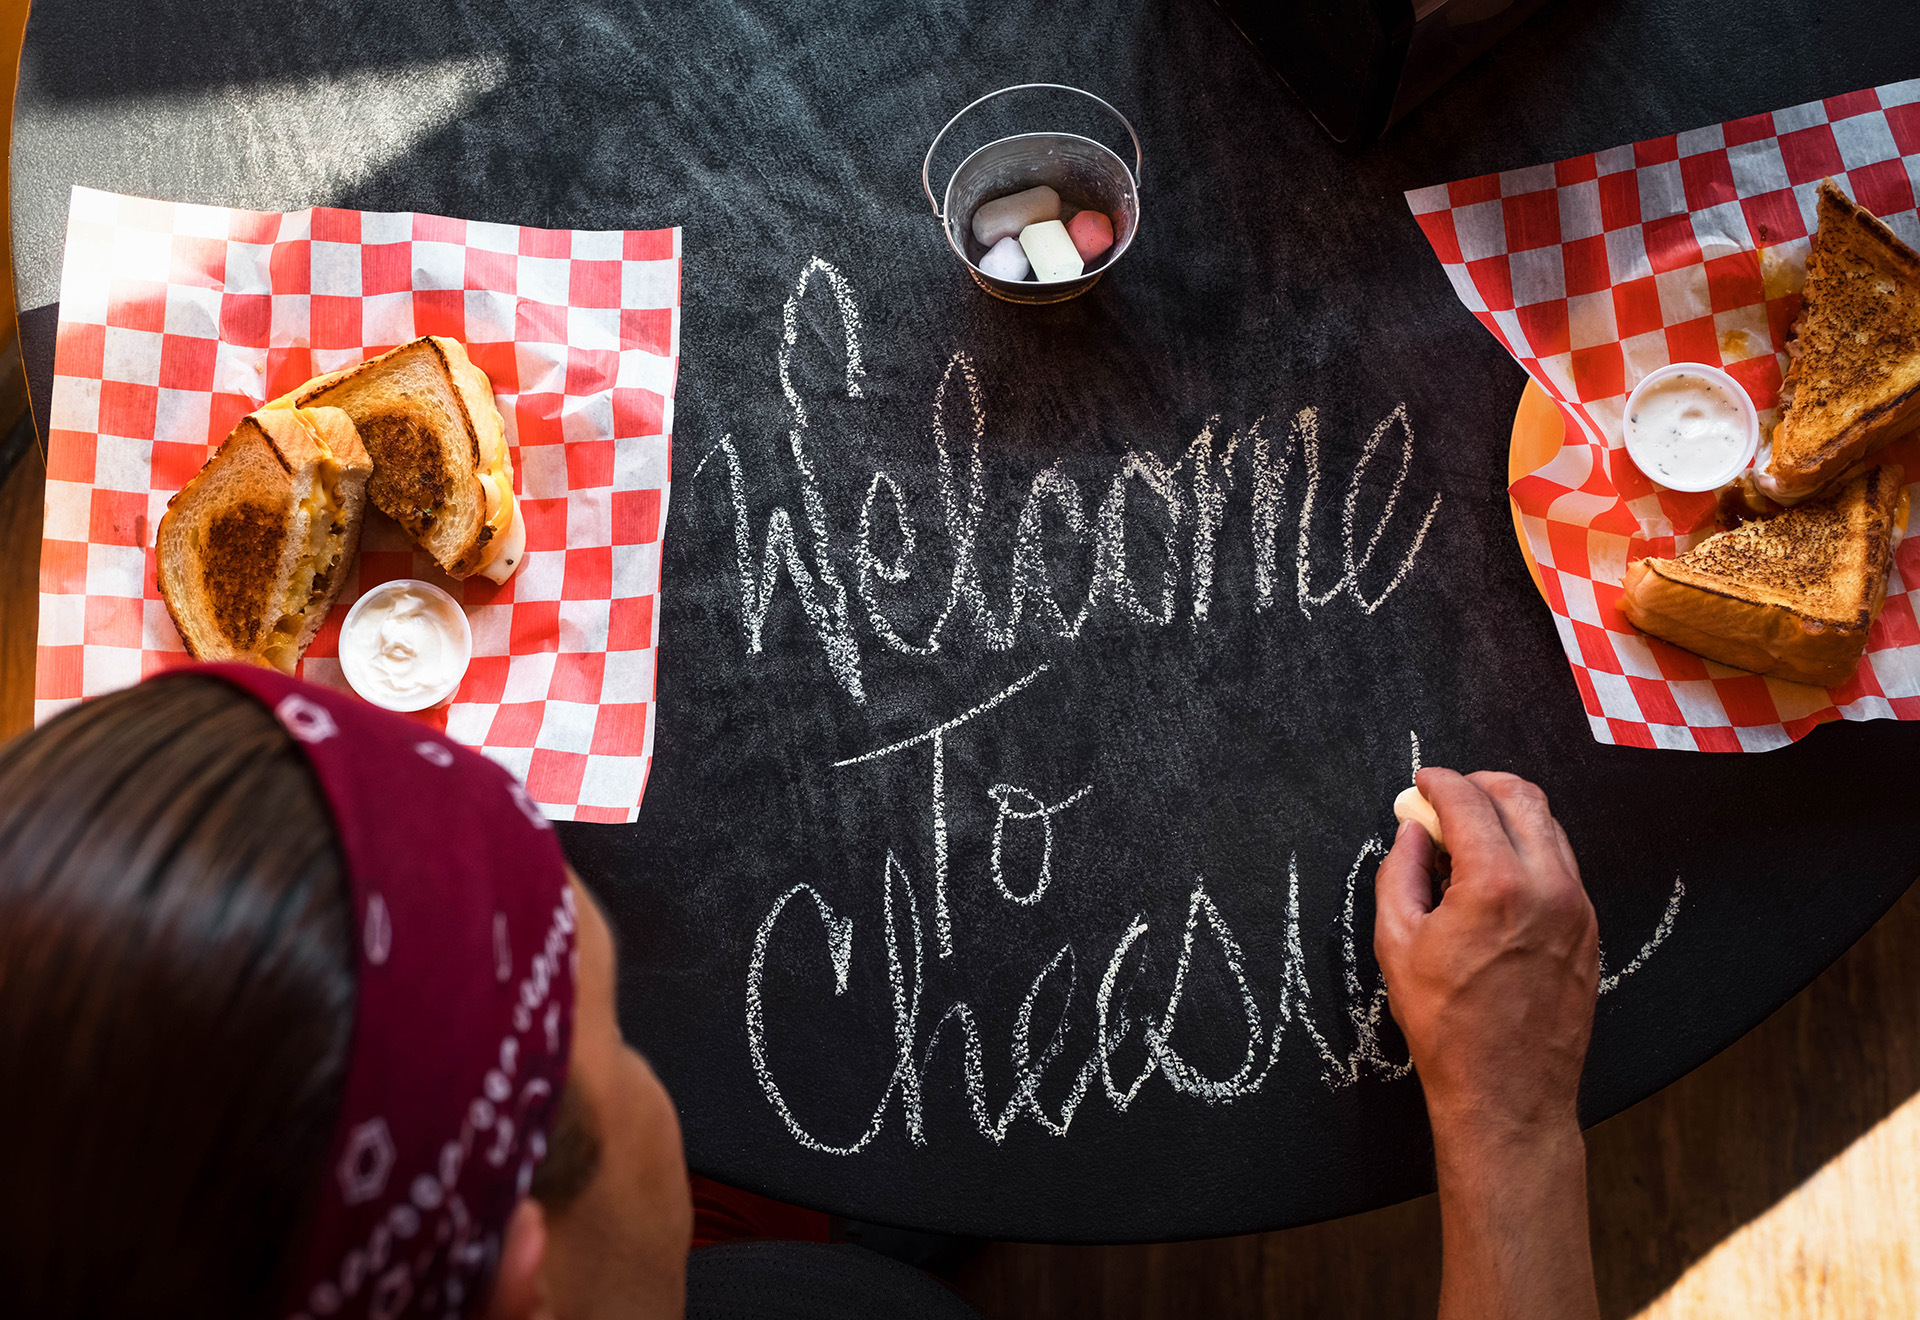 Welcome
To
Cheesie'